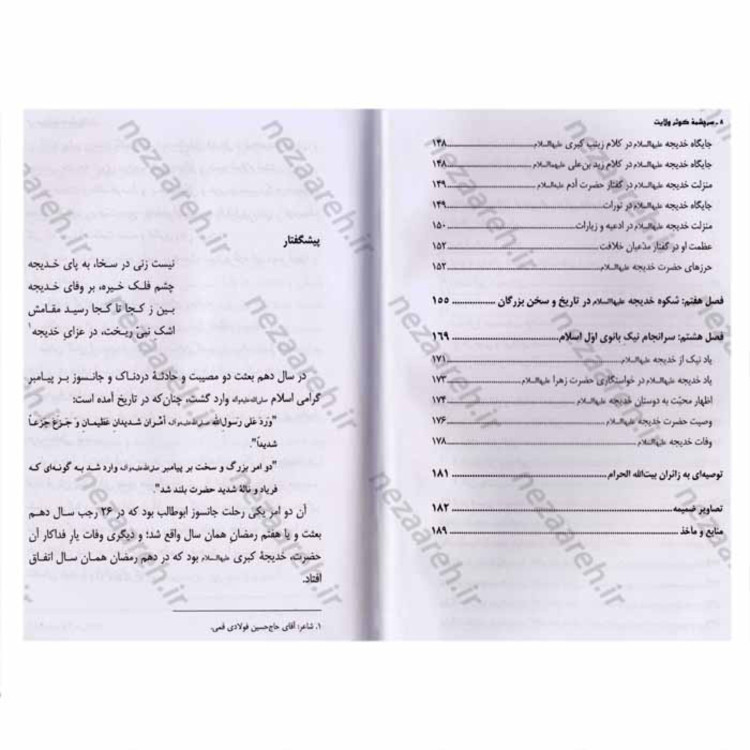 ۸ ـ سرچشمهٔ کوثر ولایت
جایگاه خدیجه علیهاالسلام در کلام زینب کبری علیهاالسلام ۱۴۸
جایگاه خدیجه علیهاالسلام در کلام زید بن علی علیهماالسلام ۱۴۸
منزلت خدیجه علیهاالسلام در گفتار حضرت آدم علیه‌السلام ۱۴۹
جایگاه خدیجه علیهاالسلام در تورات ۱۴۹
منزلت خدیجه علیهاالسلام در ادعیه و زیارات ۱۵۰
عظمت او در گفتار مدّعیان خلافت ۱۵۲
حرزهای حضرت خدیجه علیهاالسلام ۱۵۲
فصل هفتم: شکوه خدیجه علیهاالسلام در تاریخ و سخن بزرگان ۱۵۵
فصل هشتم: سرانجام نیک بانوی اوّل اسلام ۱۶۹
یاد نیک از خدیجه علیهاالسلام ۱۷۱
یاد خدیجه علیهاالسلام در خواستگاری حضرت زهرا علیهاالسلام ۱۷۳
اظهار محبّت به دوستان خدیجه علیهاالسلام ۱۷۴
وصیت حضرت خدیجه علیهاالسلام ۱۷۶
وفات خدیجه علیهاالسلام ۱۷۸
توصیه‌ای به زائران بیت‌الله الحرام ۱۸۱
تصاویر ضمیمه ۱۸۲
منابع و مآخذ ۱۸۹
پیشگفتار
نیست زنی در سخا، به پای خدیجه
چشم فلک خیره، بر وفای خدیجه
بین ز کجا تا کجا رسید مقامش
اشک نبیّ ریخت، در عزای خدیجه۱
در سال دهم بعثت دو مصیبت و حادثهٔ دردناک و جانسوز بر پیامبر
گرامی اسلام صلی‌الله‌علیه‌وآله وارد گشت، چنان‌که در تاریخ آمده است:
"وَرَدَ عَلی رسول‌الله صلی‌الله‌علیه‌وآله أمْران شدیدان عظیمان وَ جَزِعَ جَزَعاً
شدیداً".
"دو امر بزرگ و سخت بر پیامبر صلی‌الله‌علیه‌وآله وارد شد به گونه‌ای که
فریاد و نالهٔ شدید حضرت بلند شد".
آن دو امر یکی رحلت جانسوز ابوطالب بود که در ۲۶ رجب سال دهم
بعثت و یا هفتم رمضان همان سال واقع شد؛ و دیگری وفات یار فداکار آن
حضرت، خدیجهٔ کبری علیهاالسلام بود که در دهم رمضان همان سال اتفاق
افتاد.
۱. شاعر: آقای حاج‌حسین فولادی قمی.
nezaareh.ir
nezaareh.ir
nezaareh.ir
nezaareh.ir
nezaareh.ir
nezaareh.ir